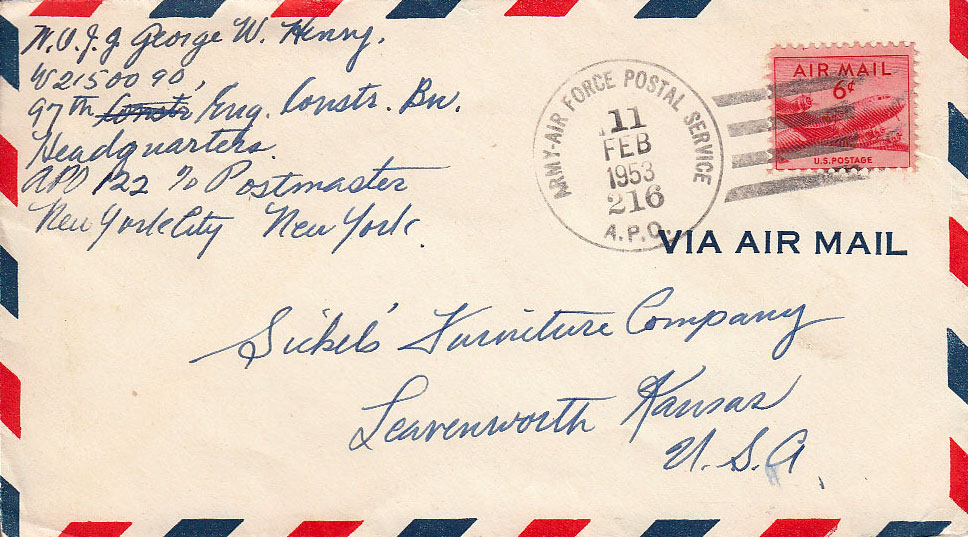 W.O.J.G. George W. Henry,
W2150090,
97th Constr Eng. Constr. Bn.
Headquarters.
APO 122 c/o Postmaster
New York City New York.
ARMY-AIR FORCE POSTAL SERVICE
11
FEB
1953
216
A.P.O.
AIR MAIL
6¢
U.S. POSTAGE
VIA AIR MAIL
Sickel's Furniture Company
Leavenworth Kansas
U.S.A.